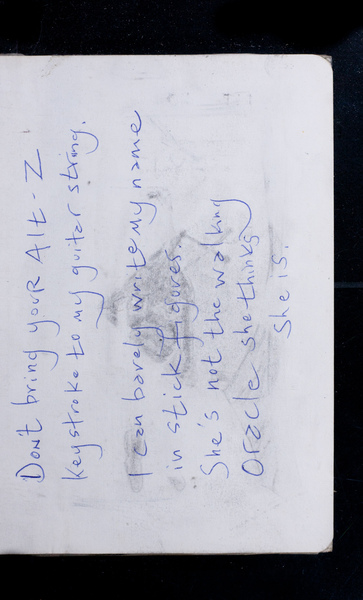 Don't bring youR Alt-Z
keystroke to my guitar string.
I can barely write my name
in stick figures.
She's not the walking
Oracle she thinks
She is.